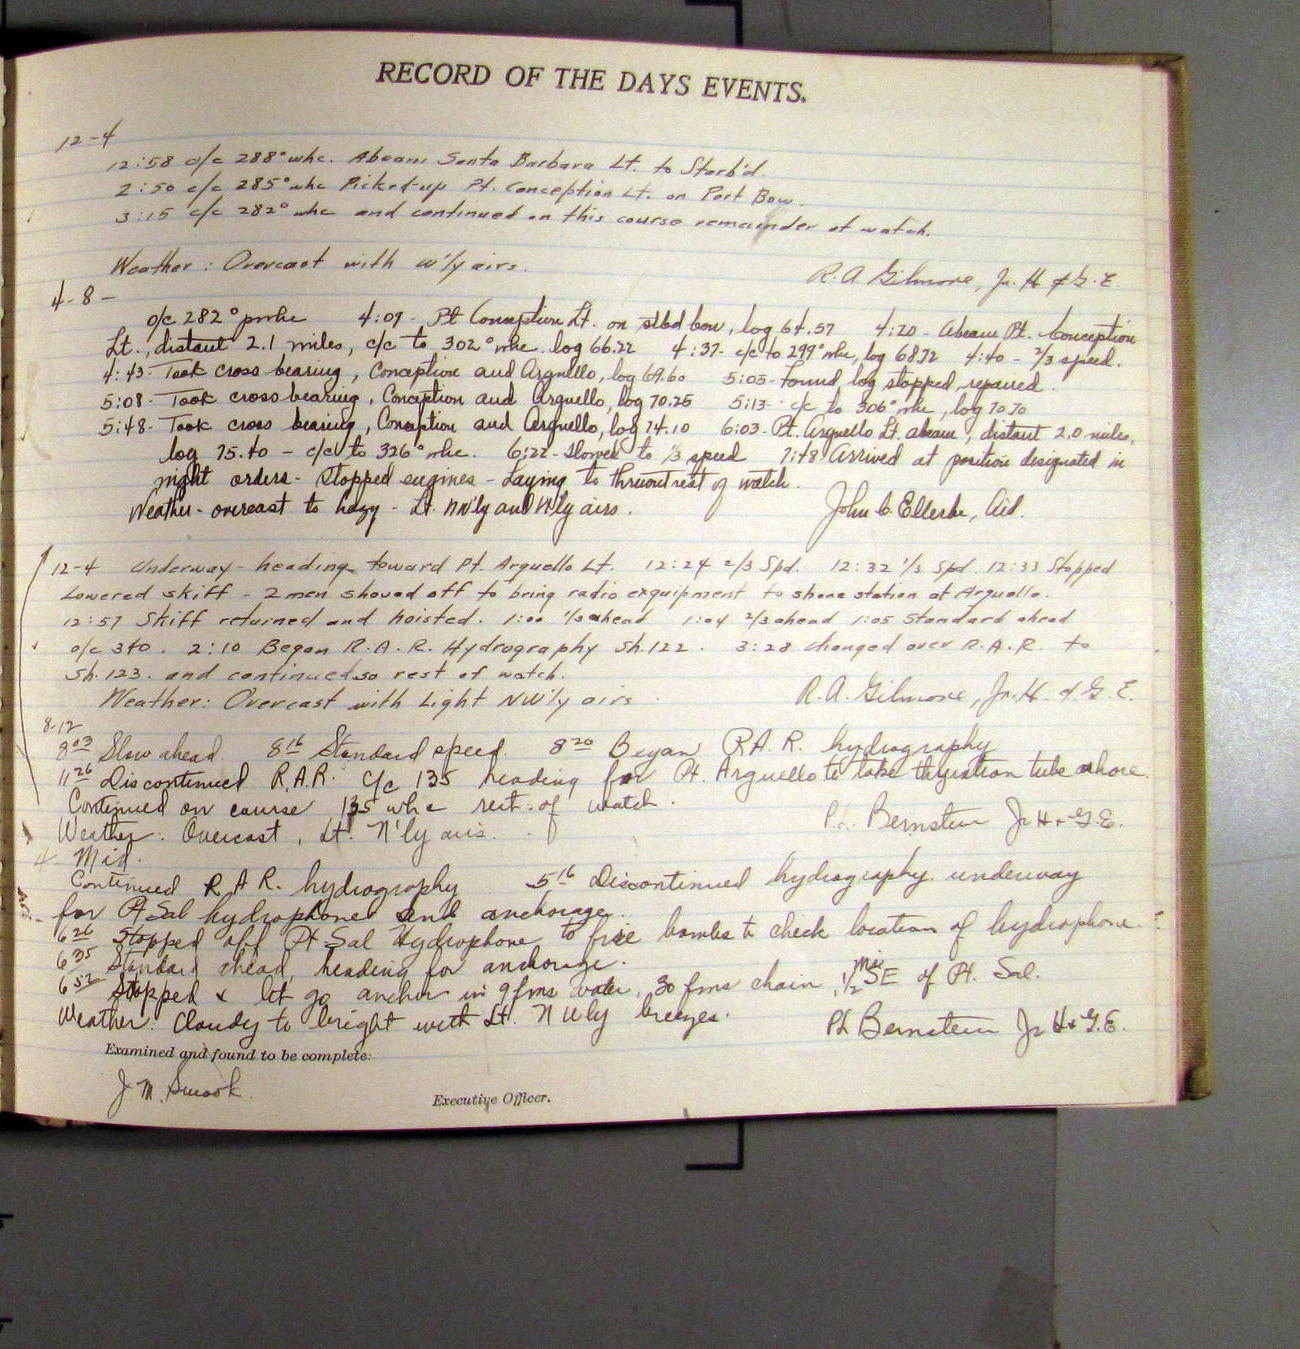 RECORD OF THE DAYS EVENTS.
12-4
12:58 c/c 288° whc. Abeam Santa Barbara Lt. to Starb'd.
2:50 c/c 285° whc Picked-up Pt. Conception Lt. on Port Bow.
3:15 c/c 282° whc and continued on this course remainder of watch.
Weather: Overcast with W'ly airs.
R.A. Gilmore, Jr. H & G.E.
4-8-
o/c 282° pwhc 4:09- Pt Conception Lt. on stbd bow, log 64.57 4:20- Abeam Pt. Conception
Lt., distant 2.1 miles, c/c to 302° whc. log 66.22 4:37- c/c to 299° whc, log 68.72 4:40- 2/3 speed.
4:43- Took cross bearing, Conception and Arguello, log 69.60 5:05- Found log stopped, repaired.
5:08- Took cross bearing, Conception and Arguello, log 70.25 5:13- c/c to 306° whc, log 70.70
5:48- Took cross bearing, Conception and Arguello, log 74.10 6:03- Pt. Arguello Lt. abeam, distant 2.0 miles,
log 75.40 - c/c to 326° whc. 6:22- Slowed to 1/3 speed 7:48 Arrived at position designated in
night orders- Stopped engines - Laying to thruout rest of watch.
Weather- overcast to hazy - Lt. NW'ly and W'ly airs.
John C. Ellerbe, Aid.
12-4 Underway - heading toward Pt. Arguello Lt. 12:24 2/3 Spd. 12:32 1/3 Spd. 12:33 Stopped
Lowered skiff - 2 men shoved off to bring radio exquipment to shore station at Arguello.
12:57 Skiff returned and hoisted. 1:00 1/3 ahead 1:04 2/3 ahead 1:05 Standard ahead
o/c 340. 2:10 Began R.A.R. Hydrography Sh. 122. 3:28 changed over R.A.R. to
Sh. 123. and continued so rest of watch.
Weather: Overcast with Light NW'ly airs
R.A. Gilmore, Jr. H. & G.E.
8-12
8 03 Slow ahead 8 16 Standard speed. 8 20 Began R.A.R. hydrography
11 26 Discontinued R.A.R. c/c 135 heading for Pt. Arguello to take tube ashore.
Continued on course 135 whc rest of watch.
Weather: Overcast, Lt. N'ly airs.
P.L. Bernstein Jr H & G.E.
4- Mid.
Continued R.A.R. hydrography 5 16 Discontinued hydrography. underway
for Pt Sal hydrophone and anchorage.
6 26 Stopped off Pt Sal Hydrophone to fire bombs to check location of hydrophone.
6 35 Standard ahead, heading for anchorage.
6 52 Stopped & let go anchor in 9 fms water, 30 fms chain, 1/2 mi SE of Pt. Sal.
Weather: Cloudy to bright with Lt. NW'ly breezes.
P.L. Bernstein Jr H & G.E.
Examined and found to be complete:
J M. Smook
Executive Officer.